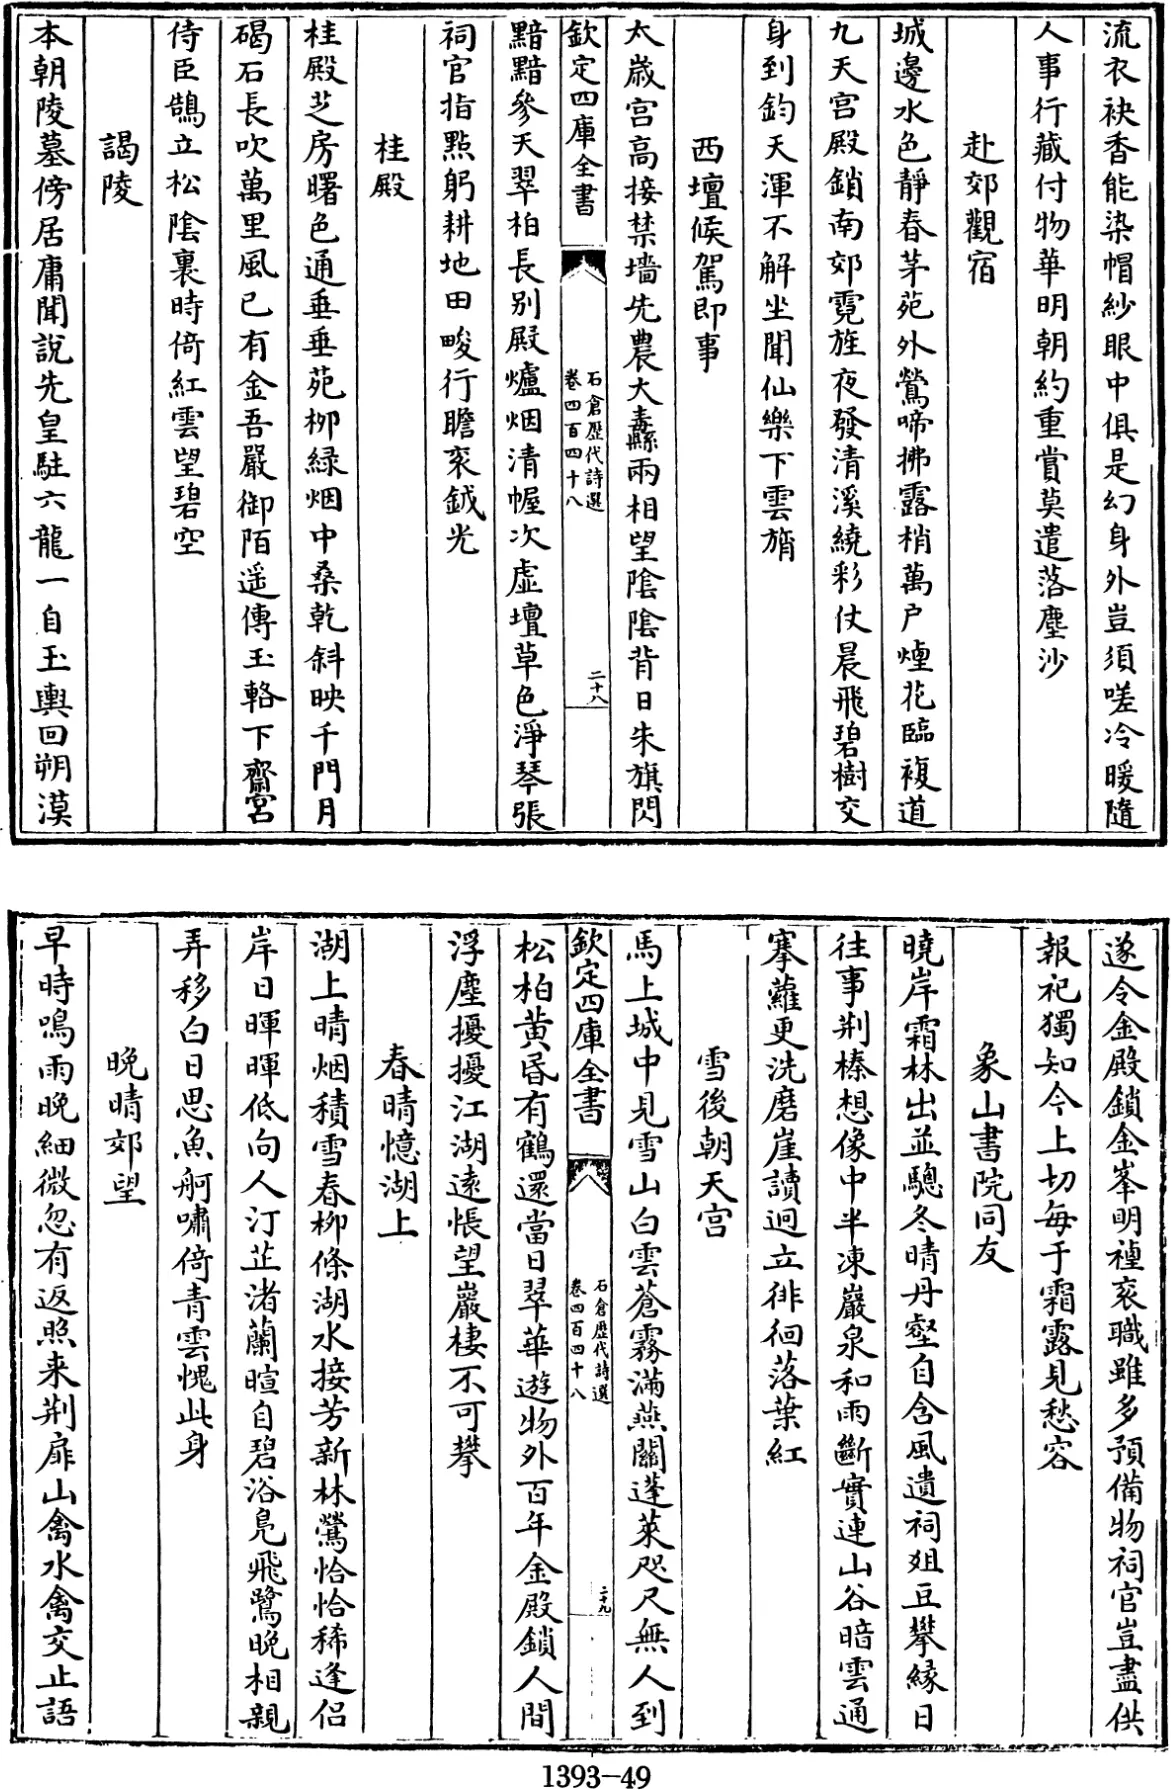 流衣袂香能染帽紗眼中俱是幻身外豈須嗟冷暖隨
人事行藏付物華明朝約重賞莫遣落塵沙
赴郊觀宿
城邊水色靜春茅苑外鶯啼拂露梢萬户煙花臨複道
九天宫殿鎖南郊霓旌夜發清溪繞彩仗晨飛碧樹交
身到鈞天渾不解坐聞仙樂下雲旓
西壇候駕即事
太歲宫高接禁墻先農大纛兩相望陰陰背日朱旗閃
欽定四庫全書
石倉歷代詩選
卷四百四十八
二十八
黯黯參天翠柏長别殿爐烟清幄次虛壇草色淨琴張
祠官指點躬耕地田畯行瞻衮鉞光
桂殿
桂殿芝房曙色通垂垂苑柳緑烟中桑乾斜映千門月
碣石長吹萬里風已有金吾嚴御陌遥傳玉輅下齋宫
侍臣鵠立松陰裏時倚紅雲望碧空
謁陵
本朝陵墓傍居庸聞說先皇駐六龍一自玉輿回朔漠
遂令金殿鎖金峯明禋衮職雖多預備物祠官豈盡供
報祀獨知今上切每于霜露見愁容
象山書院同友
曉岸霜林出並驄冬晴丹壑自含風遺祠爼豆攀緣日
往事荆榛想像中半凍巖泉和雨斷實連山谷暗雲通
搴蘿更洗磨崖讀迥立徘徊落葉紅
雪後朝天宫
馬上城中見雪山白雲蒼霧滿燕關蓬萊咫尺無人到
欽定四庫全書
石倉歷代詩選
卷四百四十八
二十九
松柏黄昏有鶴還當日翠華遊物外百年金殿鎖人間
浮塵擾擾江湖遠悵望巖棲不可攀
春晴憶湖上
湖上晴烟積雪春柳條湖水接芳新林鶯恰恰稀逢侣
岸日暉暉低向人汀芷渚蘭暄自碧浴鳬飛鷺晚相親
弄移白日思魚舸嘯倚青雲愧此身
晚晴郊望
早時鳴雨晚細微忽有返照来荆扉山禽水禽交止語
1393—49